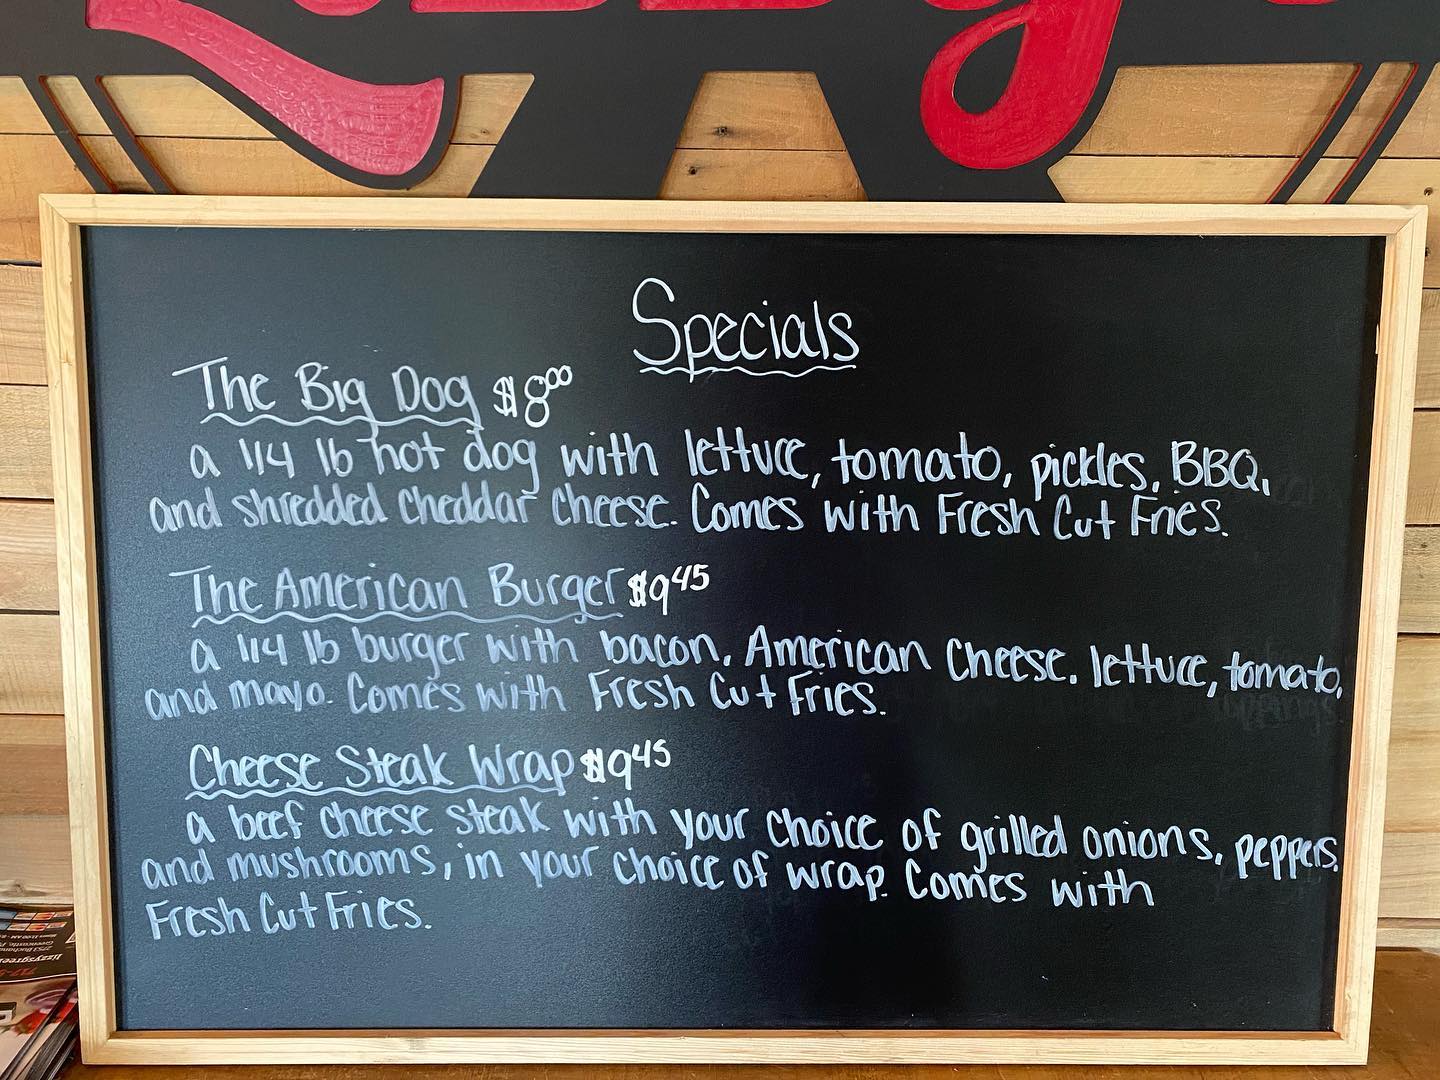 Specials
The Big Dog $8⁰⁰
a 1/4 lb hot dog with lettuce, tomato, pickles, BBQ,
and shredded cheddar cheese. Comes with Fresh Cut Fries.
The American Burger $9⁴⁵
a 1/4 lb burger with bacon, American cheese, lettuce, tomato,
and mayo. Comes with Fresh Cut Fries.
Cheese Steak Wrap $9⁴⁵
a beef cheese steak with your choice of grilled onions, peppers,
and mushrooms, in your choice of wrap. Comes with
Fresh Cut Fries.